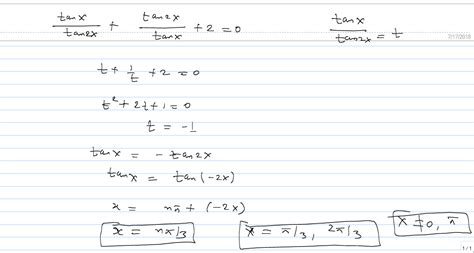 tanx/tan2x + tan2x/tanx + 2 = 0
tanx/tan2x = t
7/17/2018
t + 1/t + 2 = 0
t² + 2t + 1 = 0
t = -1
tanx = - tan2x
tanx = tan(-2x)
x = nπ + (-2x)
x = nπ/3
x = π/3, 2π/3
x ≠ 0, π
1/1